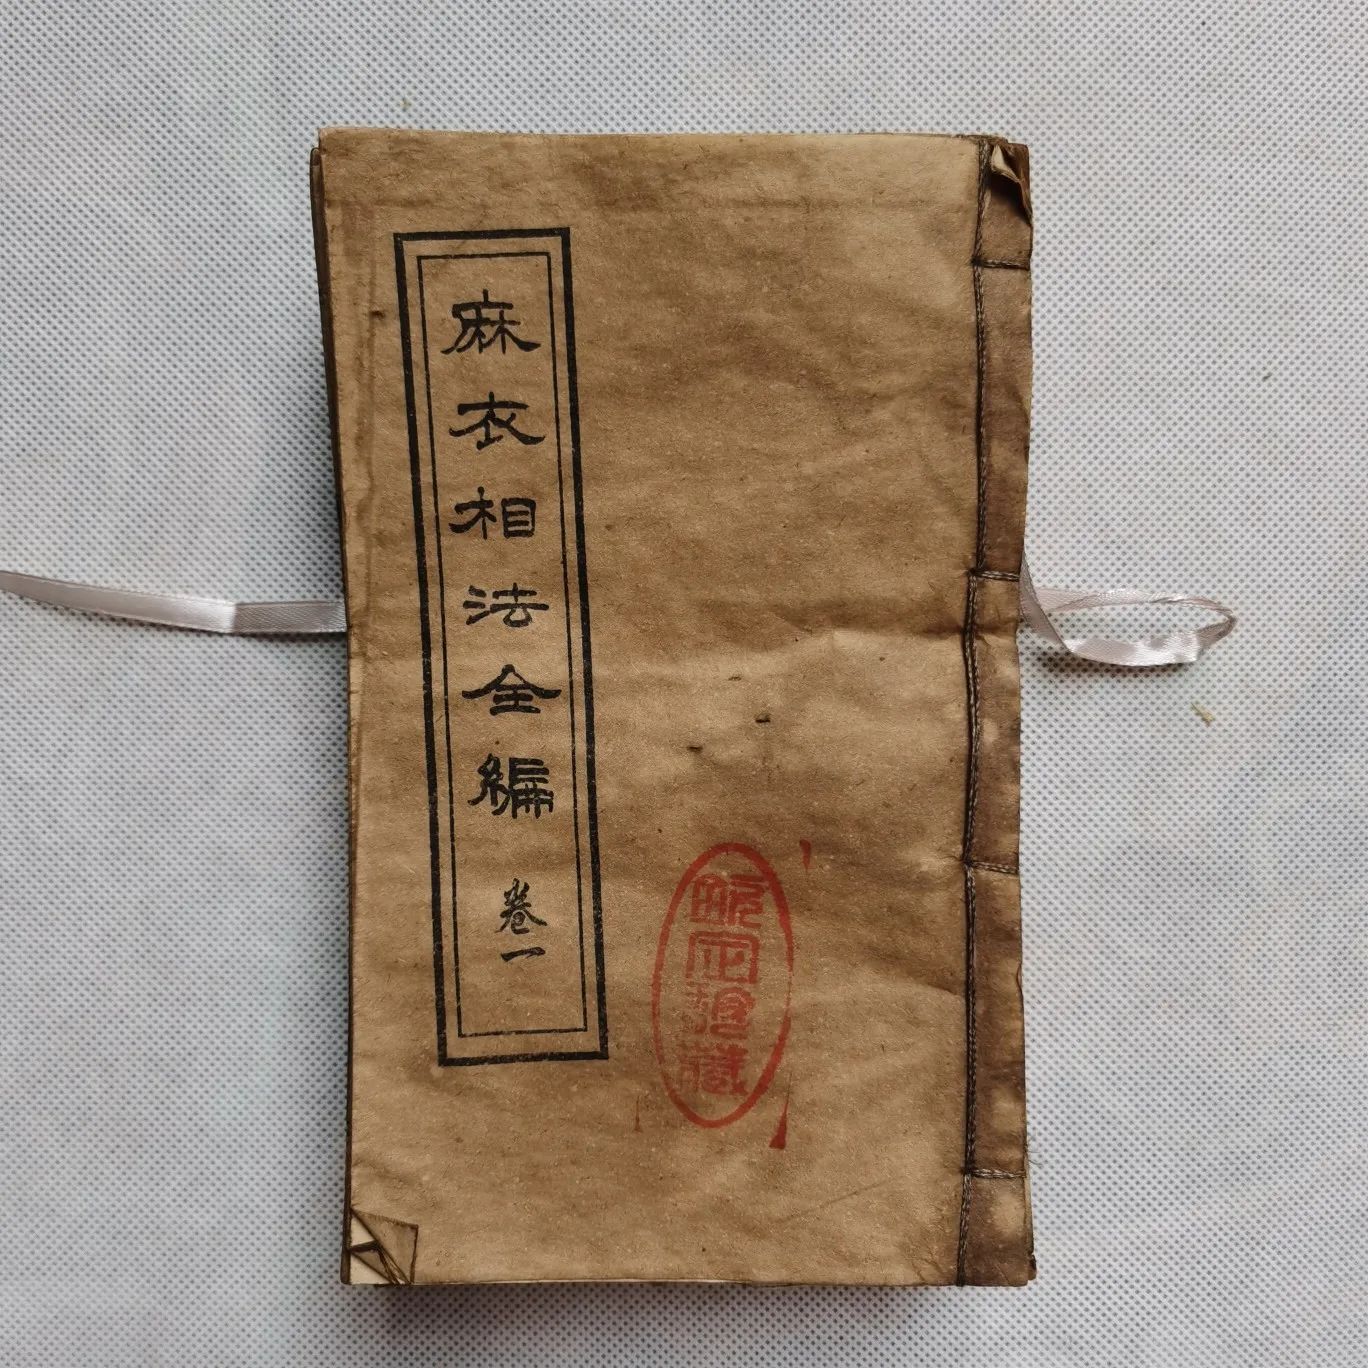 麻衣相法全編 卷一